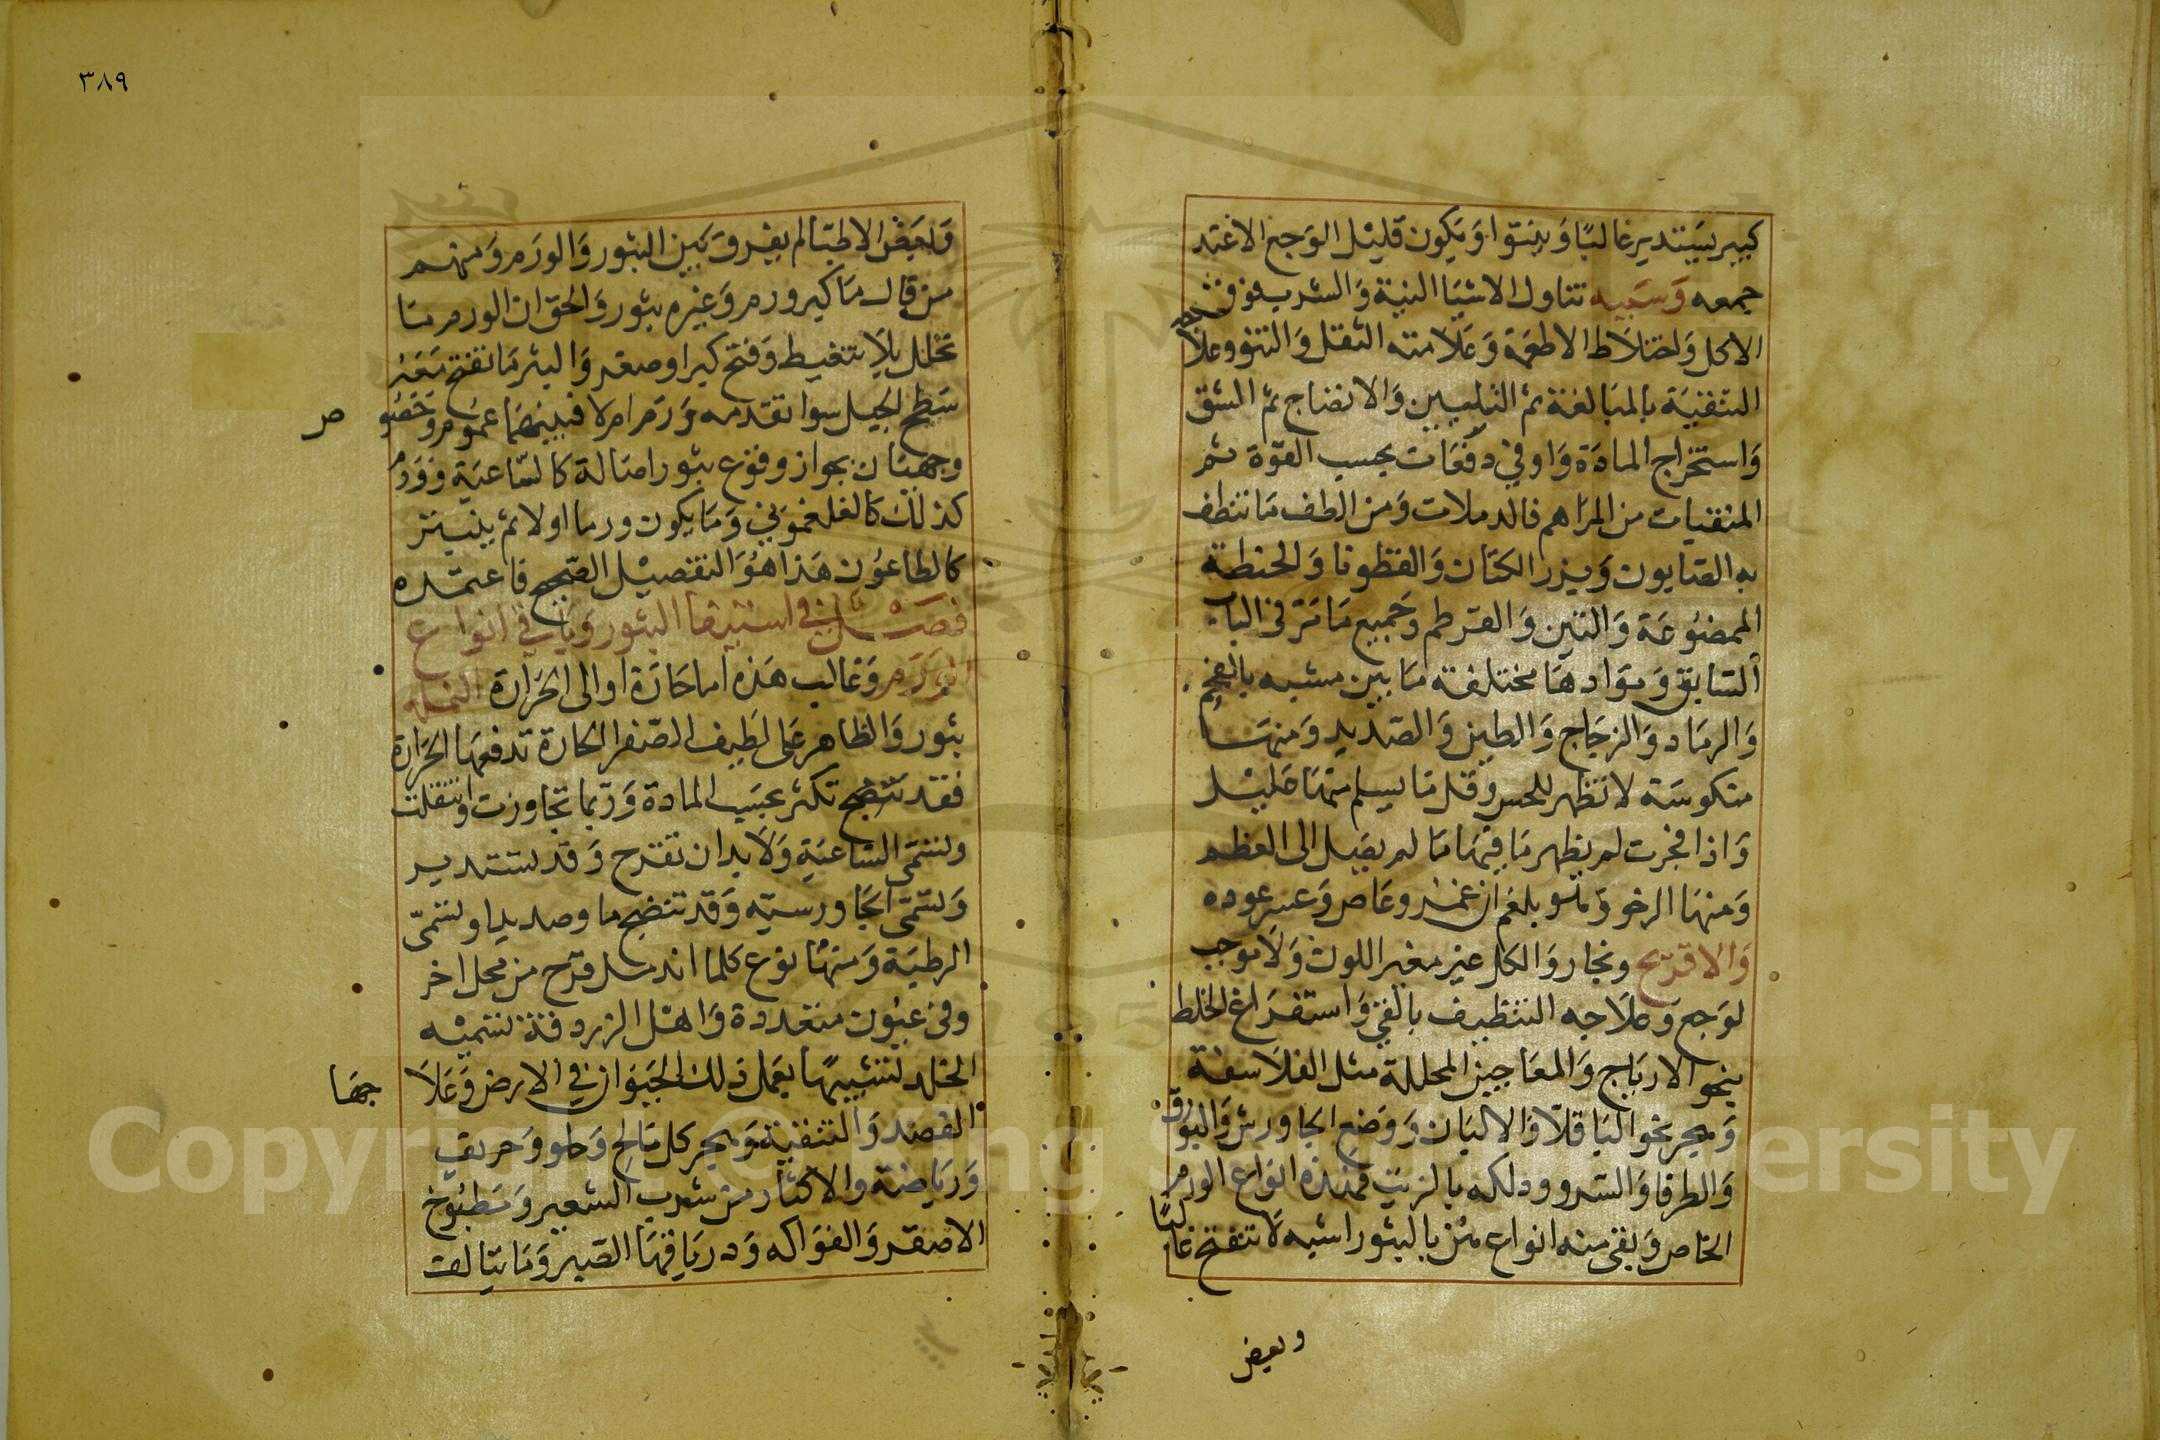 كبير يستدير غالبًا وينتوا ويكون قليل الوجع الا عند
جمعه وسببه تناول الاشيا النية والشرب فوق
الاكل واختلاط الاطعمة وعلامته الثقل والنتو وعلا
التنقية بالمبالغة ثم التليين والانضاج ثم الشق
واستخراج المادة واو في دفعات بحسب القوة ثم
المنقيات من المراهم فالدملات ومن الطف ما تنظف
به الصابون وبزر الكتان والقطونا والحنطة
الممضوغة والتين والقرطم وجميع ما مر في الباب
السابق وموادها مختلفة ما بين مشبه بالفحم
والرماد والزجاج والطين والصديد ومنها
منكوسة لا تظهر للحس وقل ما يسلم منها عليل
واذا فجرت لم يظهر ما فيها ما لم يصل الى العظم
ومنها الرخو وهو بلغم ان غمز وغاص وعسر عوده
والا فريح وبخار والكل غير مغير اللون ولا موجب
لوجع وعلاجه التنظيف بالقي واستفراغ الخلط
بنحو الارياج والمعاجين المحللة مثل الفلاسفة
ويهجر نحو الباقلا والالبان ووضع الجاورش والبورق
والطرفا والسرو ودلكه بالزيت فهذه انواع الورم
الخاص وبقي منه انواع من بالبثور اشبه لا تنفتح غالبًا
وبعض
٣٨٩
وبعض الاطبا لم يفرق بين البثور والورم ومنهم
من قال ما كبر ورم وغيره بثور والحق ان الورم ما
تحلل بلا تنفيط وفتح كبر او صغر والبثر ما نفتح مغير
سطح الجلد سوا تقدمه ورم ام لا فبينهما عموم وخصو
ص
وجهيان بجواز وقوع بثور اصالة كالساعية وورم
كذلك كالفلغموني وما يكون ورما اولا ثم ينبثر
كالطاعون هذا هو التفصيل الصحيح فاعتمده
فصل في استيفا البثور وباقي انواع
الورم وغالب هذه اما حارة او الى الحرارة النملة
بثور والظاهر على لطيف الصفرا الحارة تدفعها الحرارة
فقد تنضج تكثر بحسب المادة وربما تجاوزت وانتقلت
وتسمى الساعية ولا بد ان تقرح وقد تستدير
وتسمى الجاورسية وقد تنضح ما وصديدا وتسمى
الرطبة ومنها نوع كلما اندمل قرح من محل اخر
وفي عيون متعددة واهل الزرد فنة تسميه
الخلد لتشبيهها بعمل ذلك الحيوان في الارض وعلا
جها
الفصد والتنقية وهجر كل مالح وحلو وحريف
ورياضة والاكثار من شرب الشعير ومطبوخ
الاصفر والفواكه ودرياقها الصبر وما يتالف